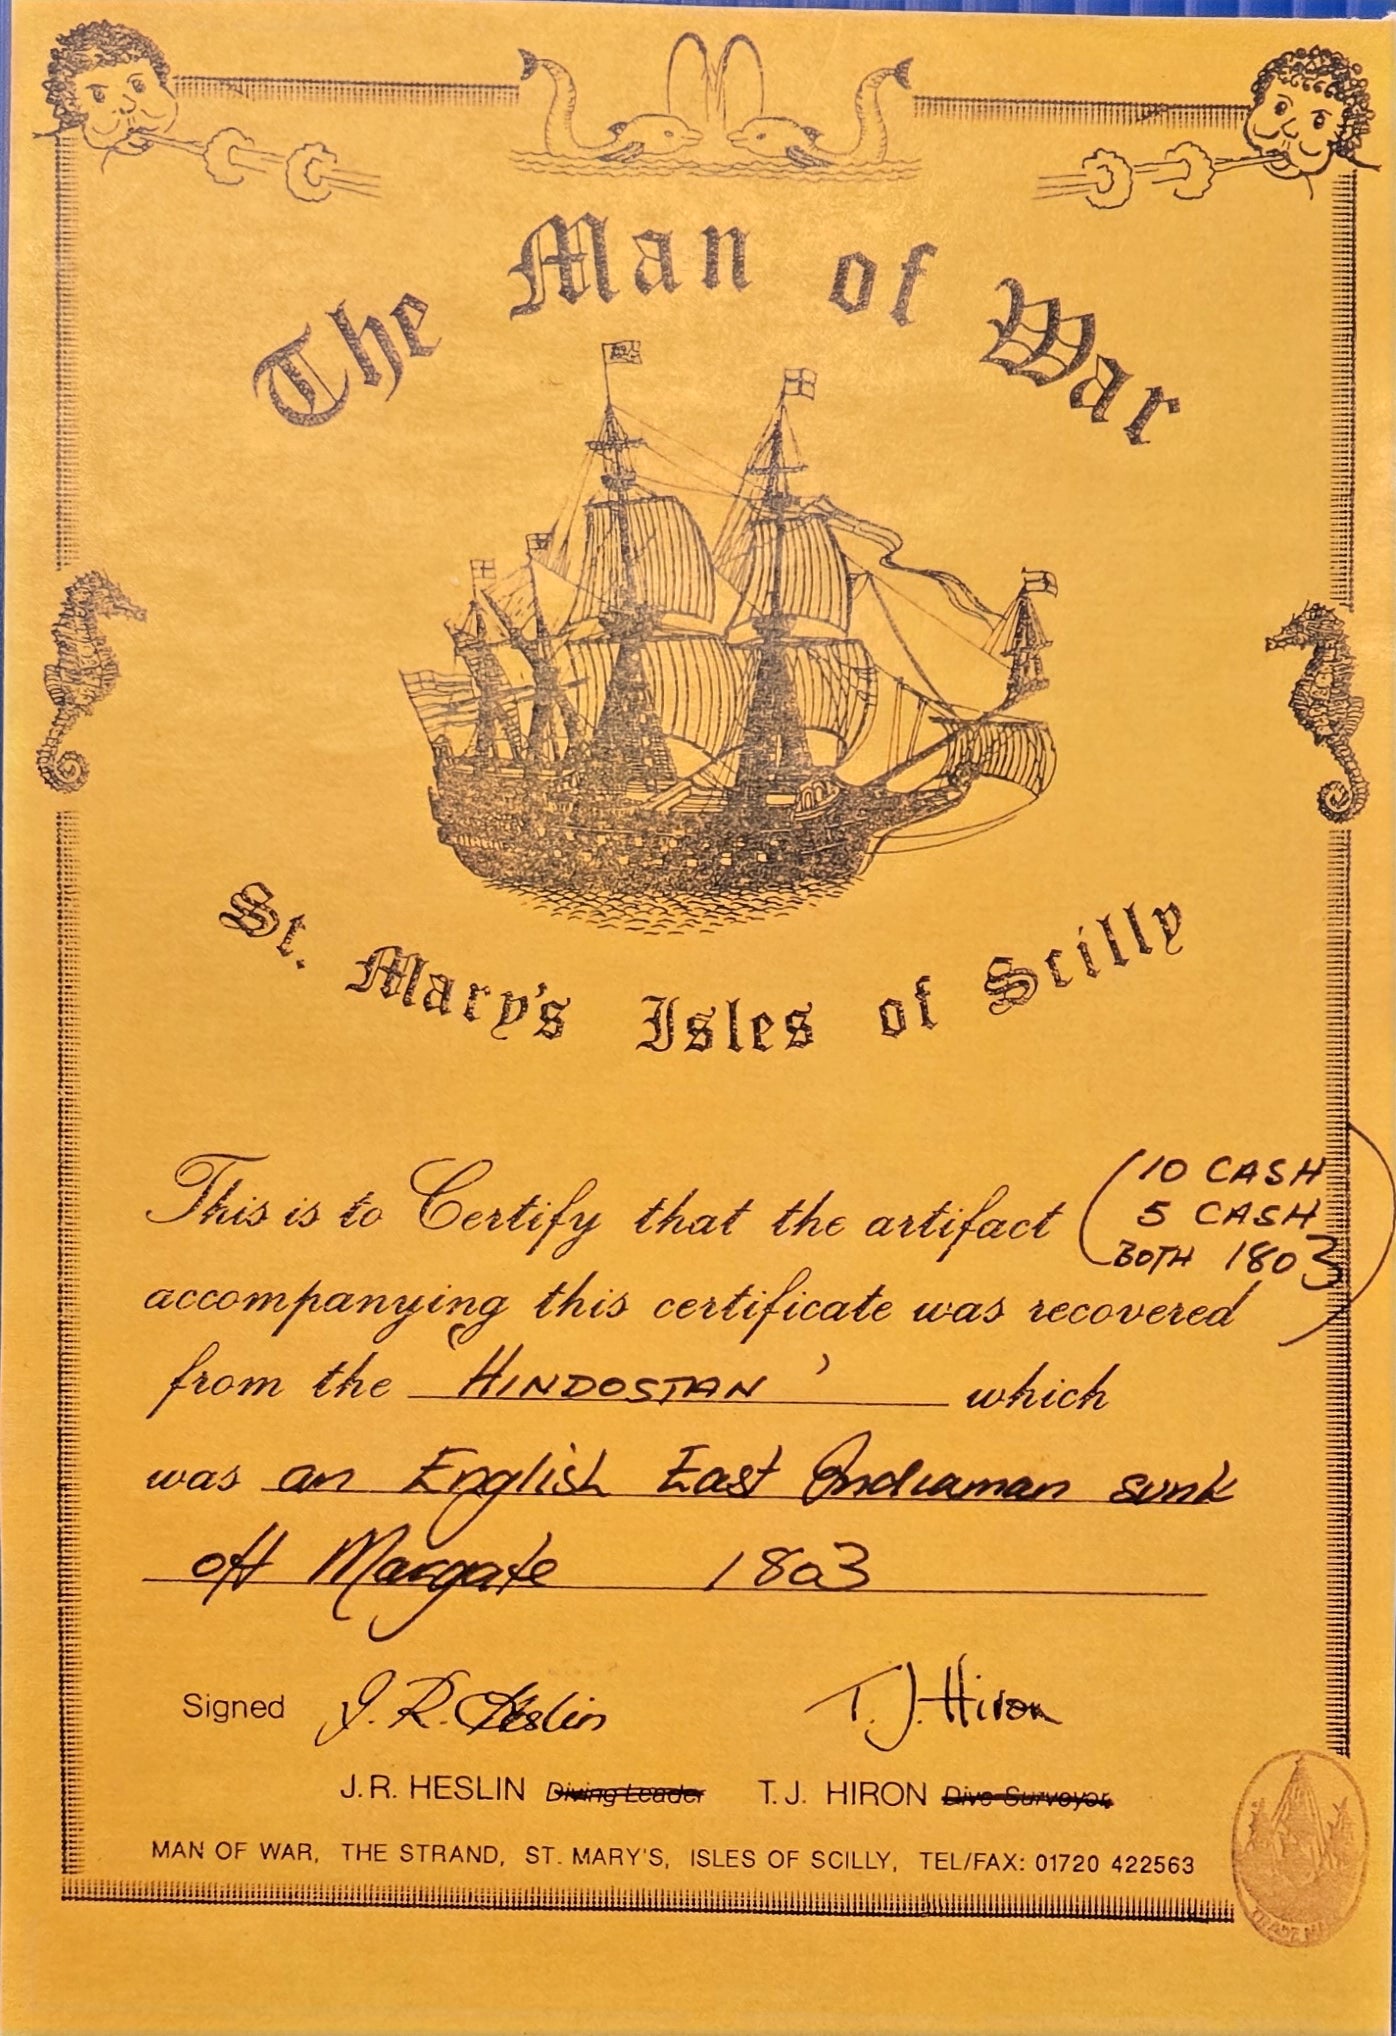 The Man of War
St. Mary's Isles of Scilly
This is to Certify that the artifact (10 CASH
5 CASH
BOTH 1803)
accompanying this certificate was recovered
from the 'HINDOSTAN' which
was an English East Indiaman sunk
off Margate 1803
Signed J.R. Heslin T.J. Hiron
J.R. HESLIN Diving Leader T.J. HIRON Dive Surveyor
MAN OF WAR, THE STRAND, ST. MARY'S, ISLES OF SCILLY, TEL/FAX: 01720 422563